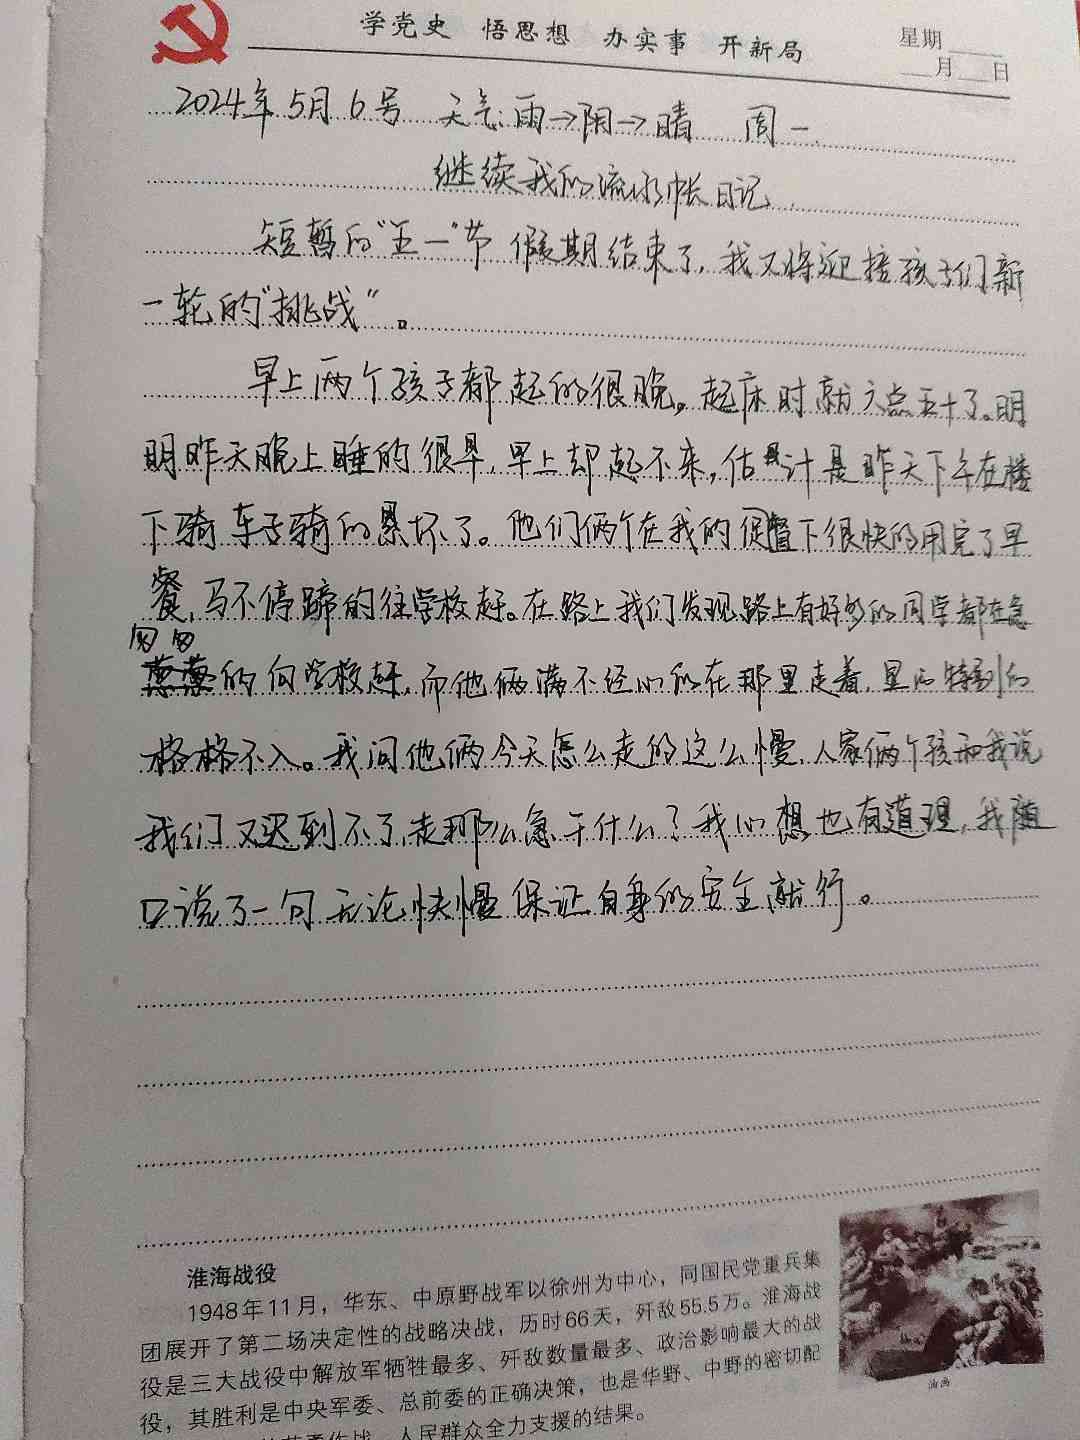 学党史 悟思想 办实事 开新局
星期
月 日
2024年5月6号 天气:雨→阴→晴 周一
继续我的流水帐日记
短暂的"五一"节假期结束了,我又将迎接孩子们新
一轮的"挑战"。
早上两个孩子都起的很晚。起床时就六点五十了。明
明昨天晚上睡的很早,早上却起不来,估计是昨天下午在楼
下骑车子骑的累坏了。他们俩个在我的促督下很快的用完了早
餐,马不停蹄的往学校赶。在路上我们发现路上有好多的同学都在急
匆匆的向学校赶,而他俩满不经心的在那里走着,显的特别的
格格不入。我问他俩今天怎么走的这么慢,人家俩个孩和我说
我们又迟到不了,走那么急干什么?我心想也有道理,我随
口说了一句无论快慢保证自身的安全就行。
淮海战役
1948年11月,华东、中原野战军以徐州为中心,同国民党重兵集
团展开了第二场决定性的战略决战,历时66天,歼敌55.5万。淮海战
役是三大战役中解放军牺牲最多、歼敌数量最多、政治影响最大的战
役,其胜利是中央军委、总前委的正确决策,也是华野、中野的密切配
英勇作战、人民群众全力支援的结果。
油画